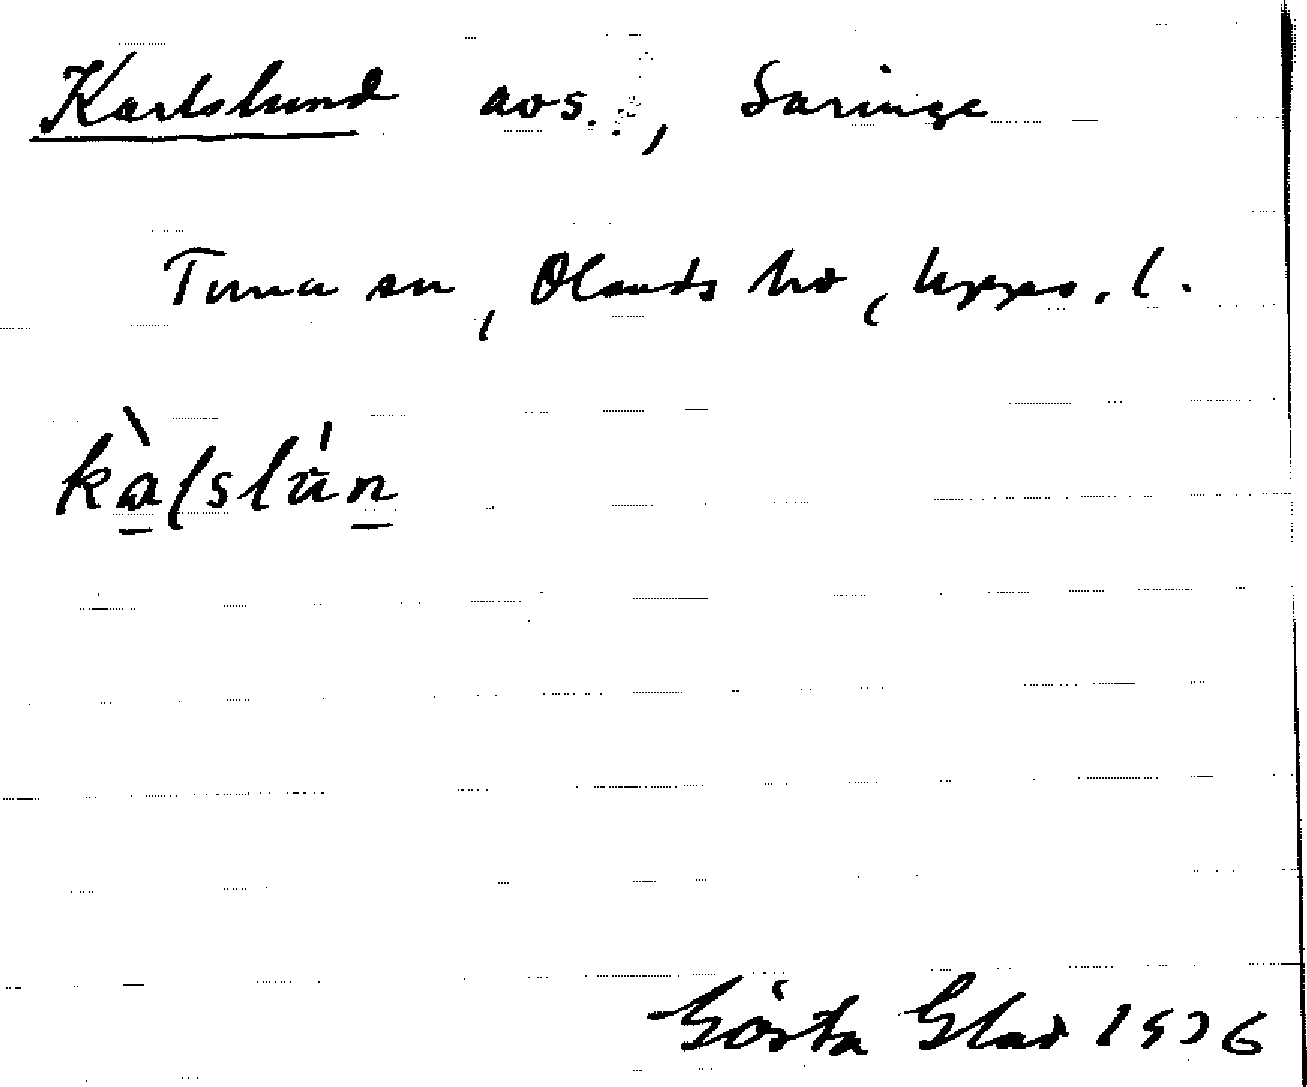 Karlslund avs., Säringe
Tuna sn, Olands hd, Upps. l.
kàlslún
Gösta Glad 1936